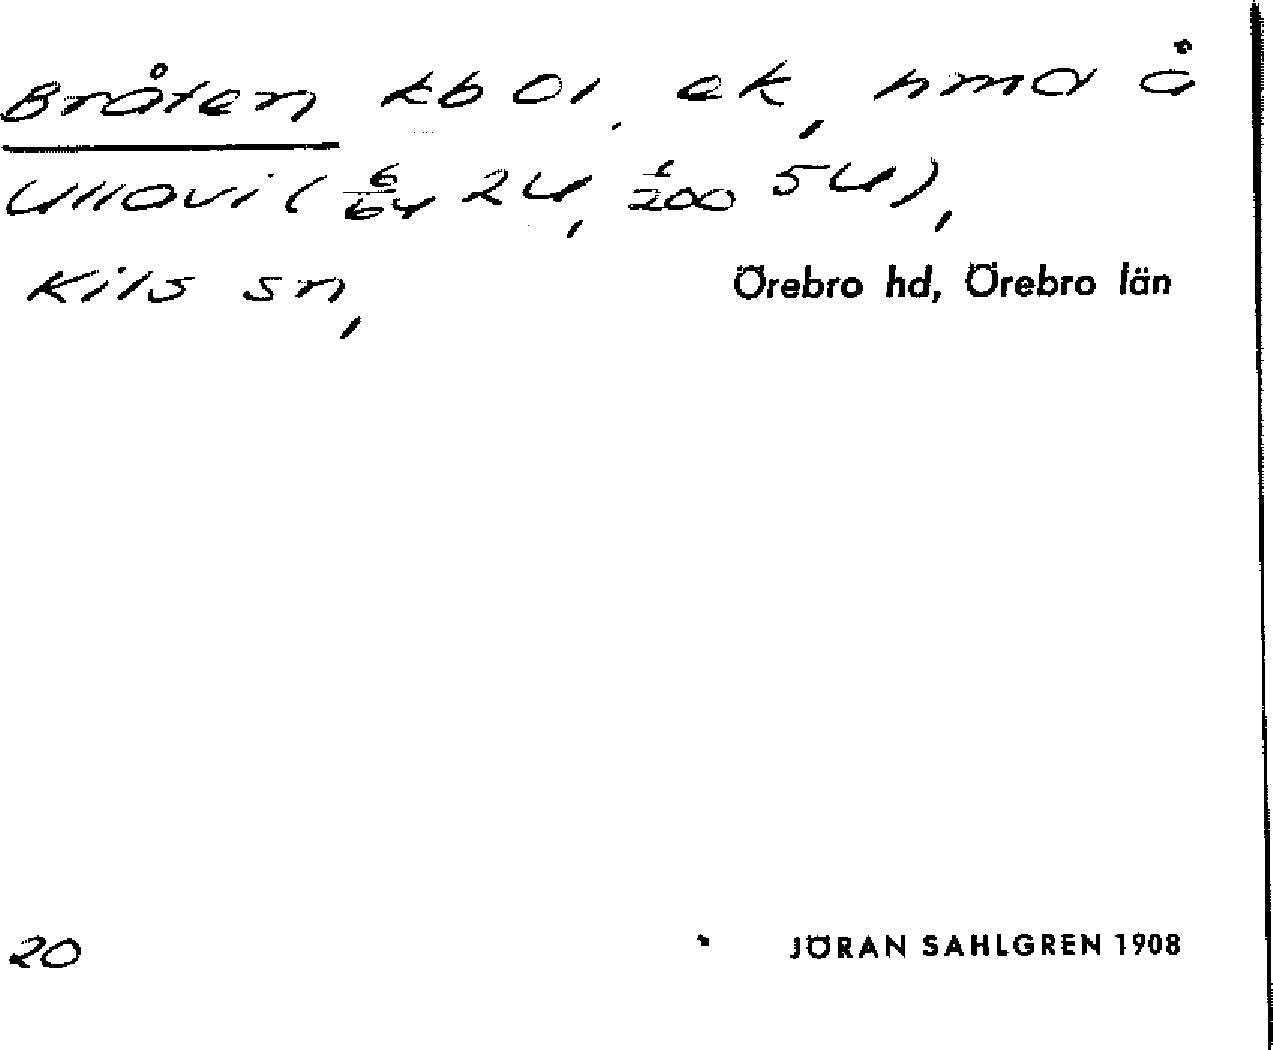 Bråten kb 01, ek, hmd å
Ullavi (6/64 2U, 1/200 5U),
Kils sn, Örebro hd, Örebro län
20 JÖRAN SAHLGREN 1908